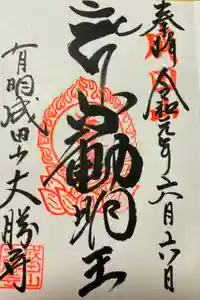 奉拝 令和元年六月六日
不動明王
有明成田山大勝寺